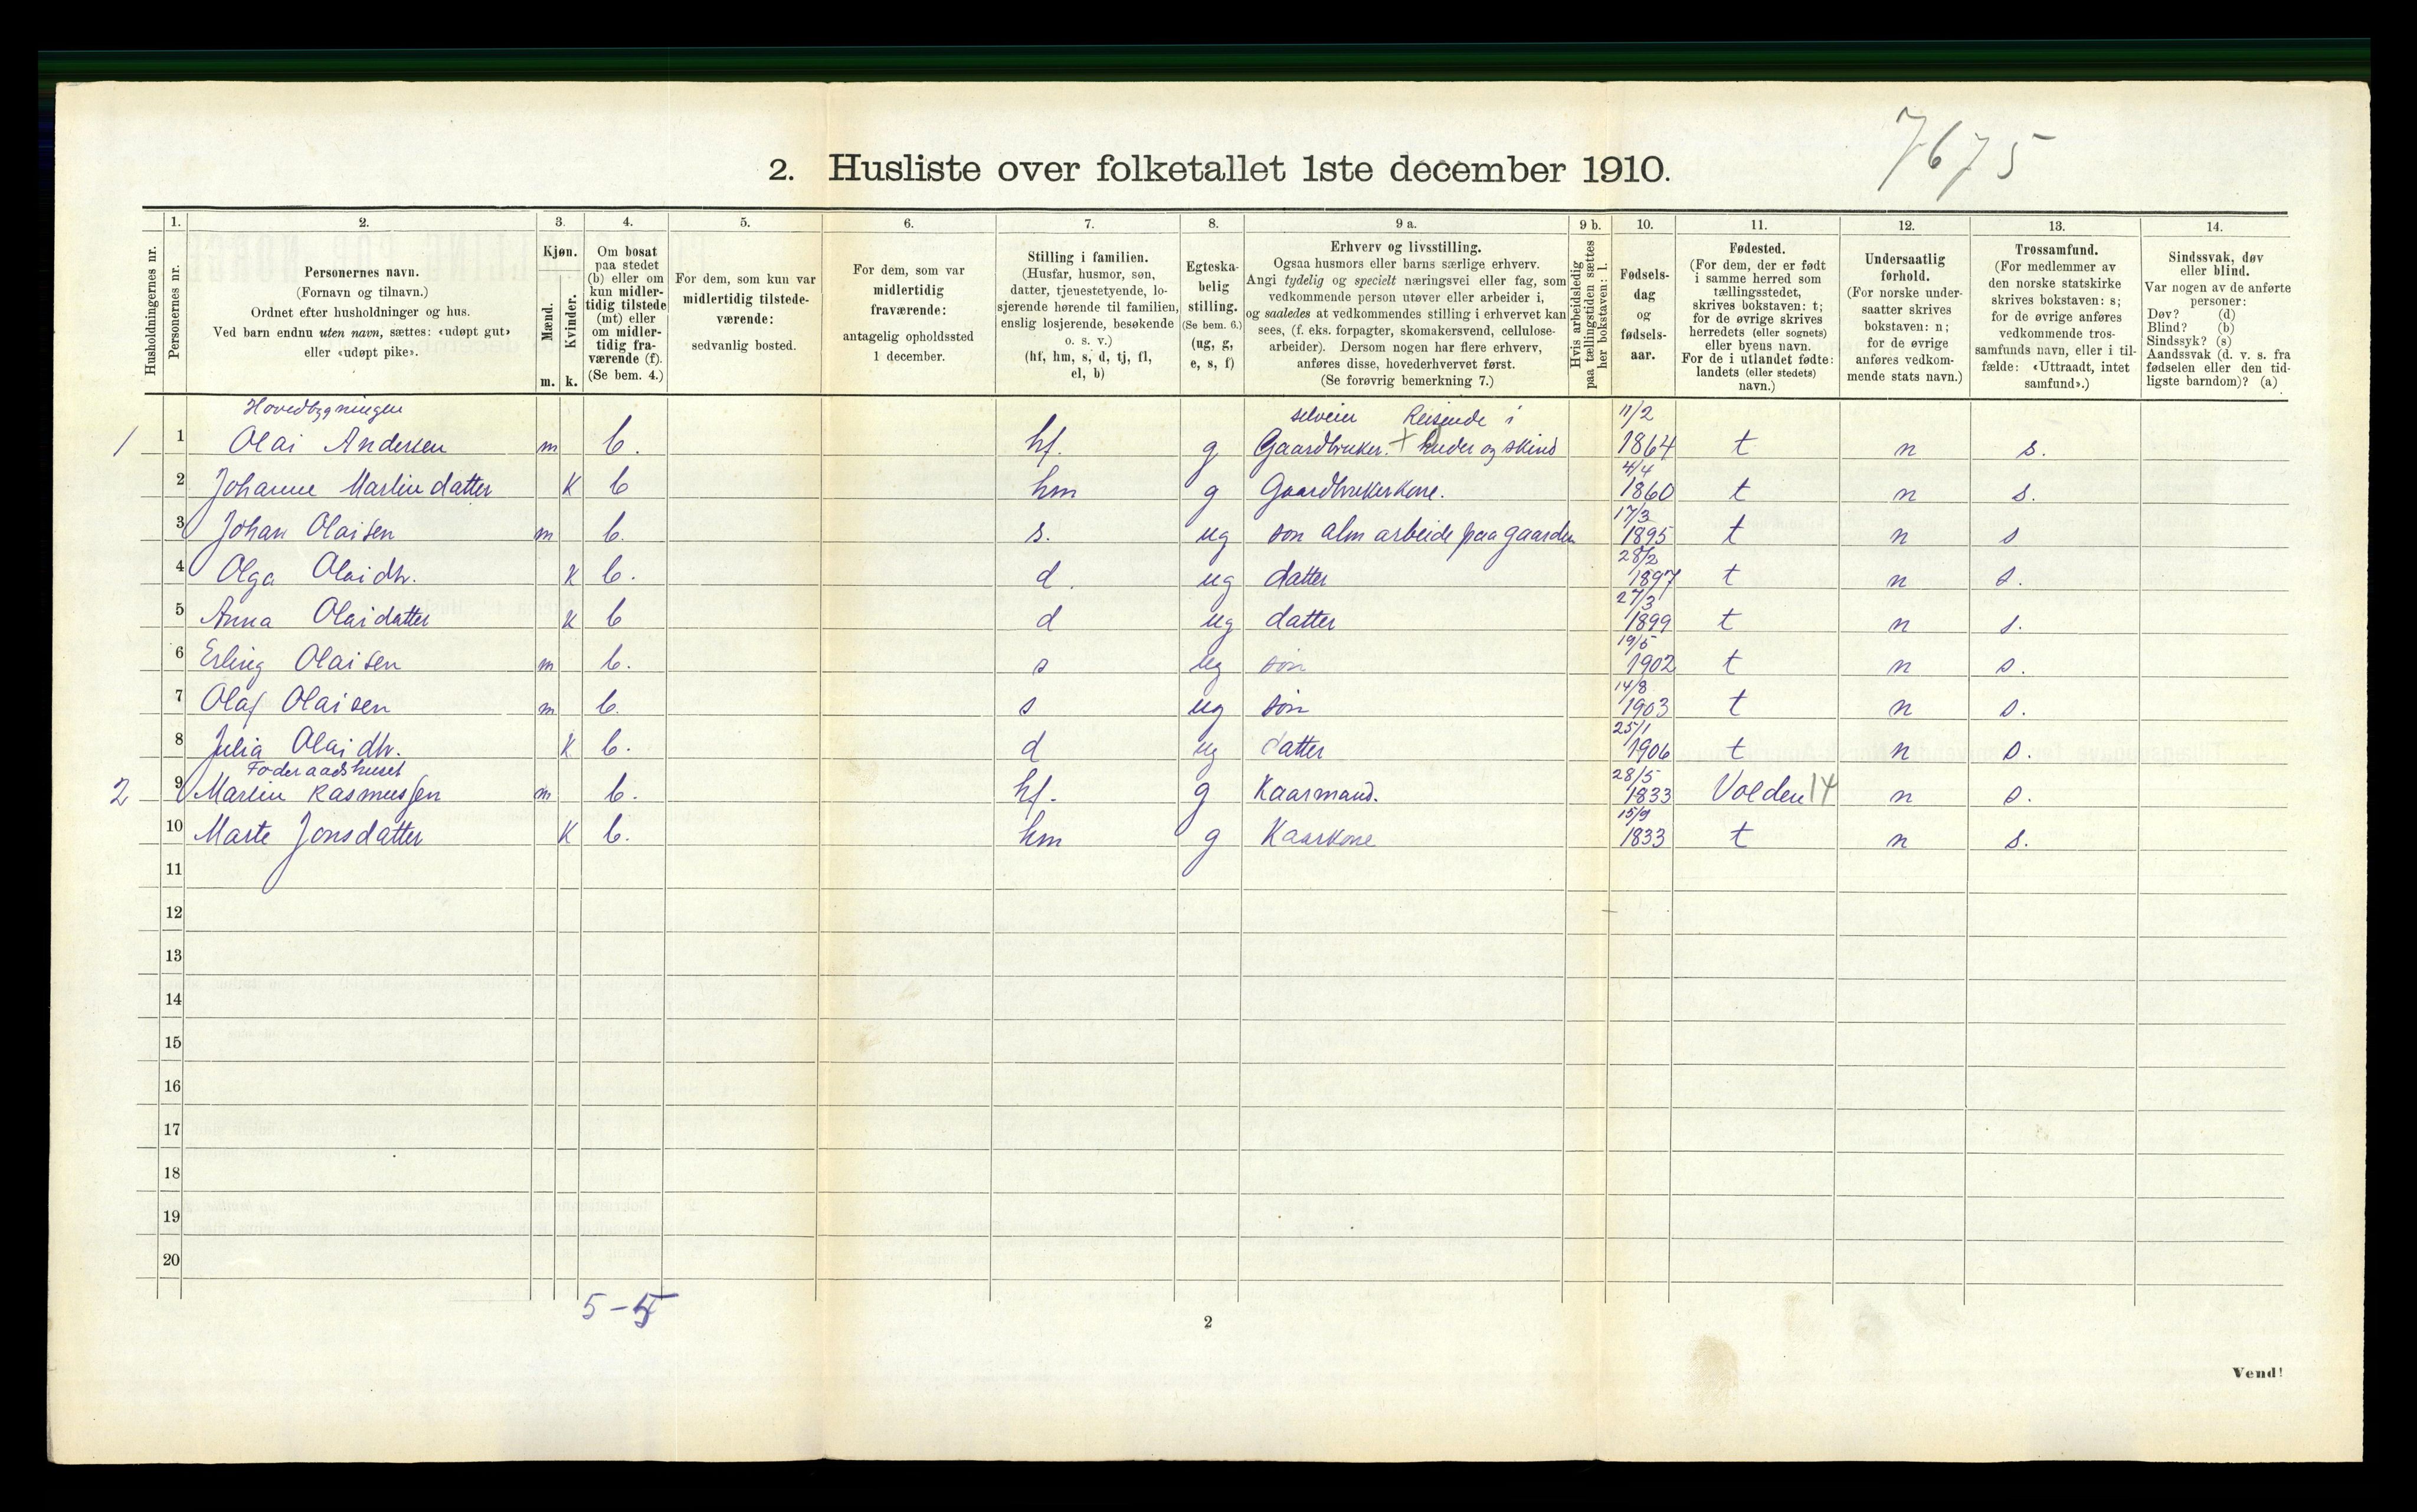 7675
2. Husliste over folketallet 1ste december 1910.
Husholdningernes nr.
1.
Personernes nr.
2.
Personernes navn.
(Fornavn og tilnavn.)
Ordnet efter husholdninger og hus.
Ved barn endnu uten navn, sættes: «udøpt gut»
eller «udøpt pike».
3.
Kjøn.
Mænd.
Kvinder.
m. k.
4.
Om bosat
paa stedet
(b) eller om
kun midler-
tidig tilstede
(mt) eller
om midler-
tidig fra-
værende (f).
(Se bem. 4.)
5.
For dem, som kun var
midlertidig tilstede-
værende:
sedvanlig bosted.
6.
For dem, som var
midlertidig
fraværende:
antagelig opholdssted
1 december.
7.
Stilling i familien.
(Husfar, husmor, søn,
datter, tjenestetyende, lo-
sjerende hørende til familien,
enslig losjerende, besøkende
o. s. v.)
(hf, hm, s, d, tj, fl,
el, b)
8.
Egteska-
belig
stilling.
(Se bem. 6.)
(ug, g,
e, s, f)
9 a.
Erhverv og livsstilling.
Ogsaa husmors eller barns særlige erhverv.
Angi tydelig og specielt næringsvei eller fag, som
vedkommende person utøver eller arbeider i,
og saaledes at vedkommendes stilling i erhvervet kan
sees, (f. eks. forpagter, skomakersvend, cellulose-
arbeider). Dersom nogen har flere erhverv,
anføres disse, hovederhvervet først.
(Se forøvrig bemerkning 7.)
9 b.
Hvis arbeidsledig
paa tællingstiden sættes
her bokstaven: l.
10.
Fødsels-
dag
og
fødsels-
aar.
11.
Fødested.
(For dem, der er født
i samme herred som
tællingsstedet,
skrives bokstaven: t;
for de øvrige skrives
herredets (eller sognets)
eller byens navn.
For de i utlandet fødte:
landets (eller stedets)
navn.)
12.
Undersaatlig
forhold.
(For norske under-
saatter skrives
bokstaven: n;
for de øvrige
anføres vedkom-
mende stats navn.)
13.
Trossamfund.
(For medlemmer av
den norske statskirke
skrives bokstaven: s;
for de øvrige anføres
vedkommende tros-
samfunds navn, eller i til-
fælde: «Uttraadt, intet
samfund».)
14.
Sindssvak, døv
eller blind.
Var nogen av de anførte
personer:
Døv? (d)
Blind? (b)
Sindssyk? (s)
Aandssvak (d. v. s. fra
fødselen eller den tid-
ligste barndom)? (a)
Hovedbygningen selveier Reisende i 11/2
1 1 Olai Andersen m b. hf. g Gaardbruker. + huder og skind 1864 t n s.
4/4
2 Johanne Martindatter k b hm g Gaardbrukerkone. 1860 t n s.
17/3
3 Johan Olaisen m b. s. ug søn alm arbeide paa gaarden 1895 t n s
28/2
4 Olga Olaidtr. k b. d. ug datter 1897 t n s.
27/3
5 Anna Olaidatter k b d ug datter 1899 t n s.
19/5
6 Erling Olaisen m b. s ug søn 1902 t n s.
14/8
7 Olaf Olaisen m b. s ug søn 1903 t n s.
25/1
8 Julia Olaidtr. k b. d ug datter 1906 t n s.
Føderaadshuset 28/5
2 9 Martin Rasmussen m b. hf. g Kaarmand. 1833 Volden 14 n s.
15/9
10 Marte Jonsdatter k b. hm g Kaarkone 1833 t n s.
11
12
13
14
15
16
17
18
19
20
5-5
2
Vend!